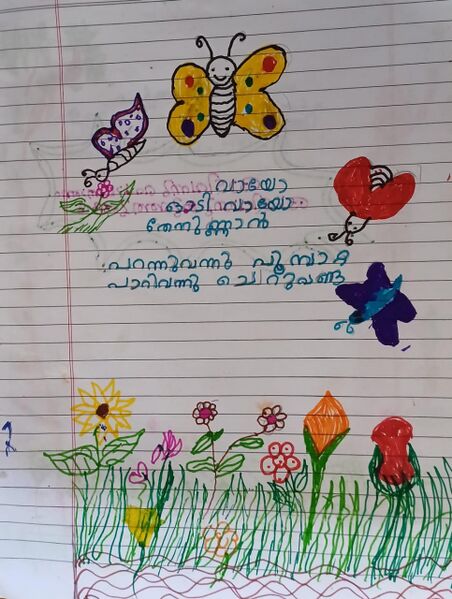 വായോ
ഓടി വായോ
തേനുണ്ണാൻ
പറന്നുവന്നു പൂമ്പാറ്റ
പാറിവന്നു ചെറുവണ്ട്